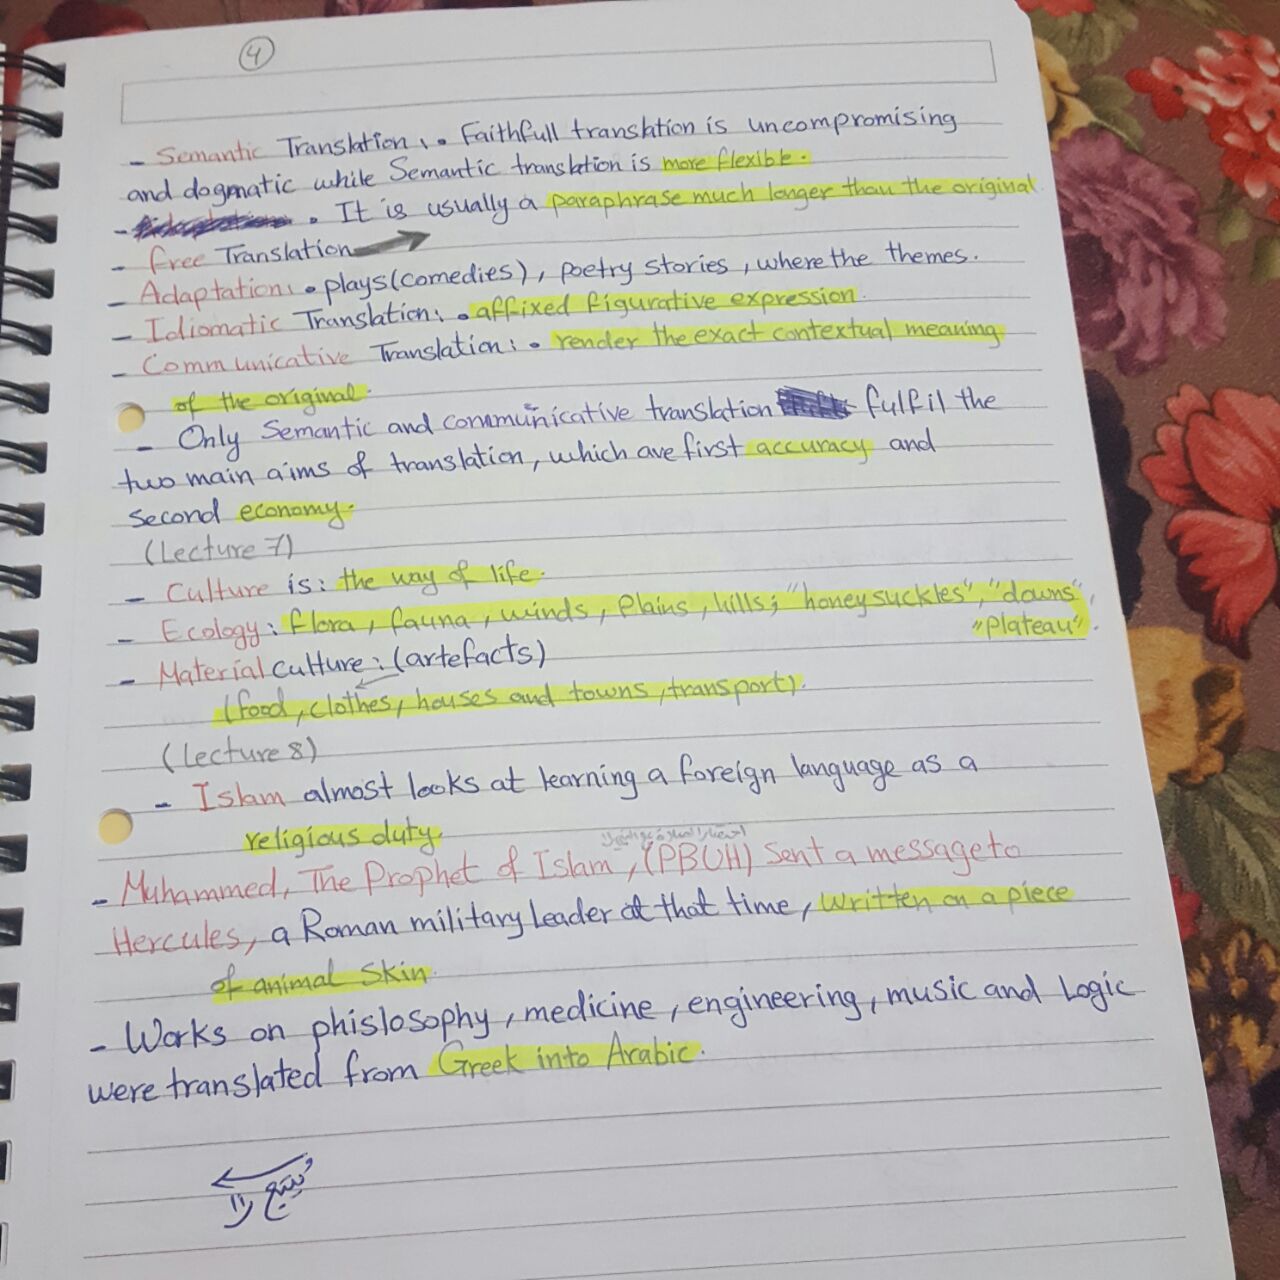 4
- Semantic Translation:. Faithfull translation is uncompromising
and dogmatic while Semantic translation is more flexible.
- . It is usually a paraphrase much longer than the original.
- free Translation
- Adaptation: . plays (comedies), poetry stories, where the themes.
- Idiomatic Translation: . affixed figurative expression.
- Communicative Translation: . render the exact contextual meaning
of the original.
- Only Semantic and communicative translation fulfil the
two main aims of translation, which are first accuracy and
second economy.
(Lecture 7)
- Culture is: the way of life.
- Ecology: flora, fauna, winds, Plains, hills; "honeysuckles", "downs",
"plateau".
- Material culture: (artefacts)
(food, clothes, houses and towns, transport).
(Lecture 8)
- Islam almost looks at learning a foreign language as a
religious duty
- Muhammed, The Prophet of Islam, (PBUH) Sent a message to
Hercules, a Roman military leader at that time, written on a piece
of animal Skin.
- Works on phislosophy, medicine, engineering, music and Logic
were translated from Greek into Arabic.
يتبع